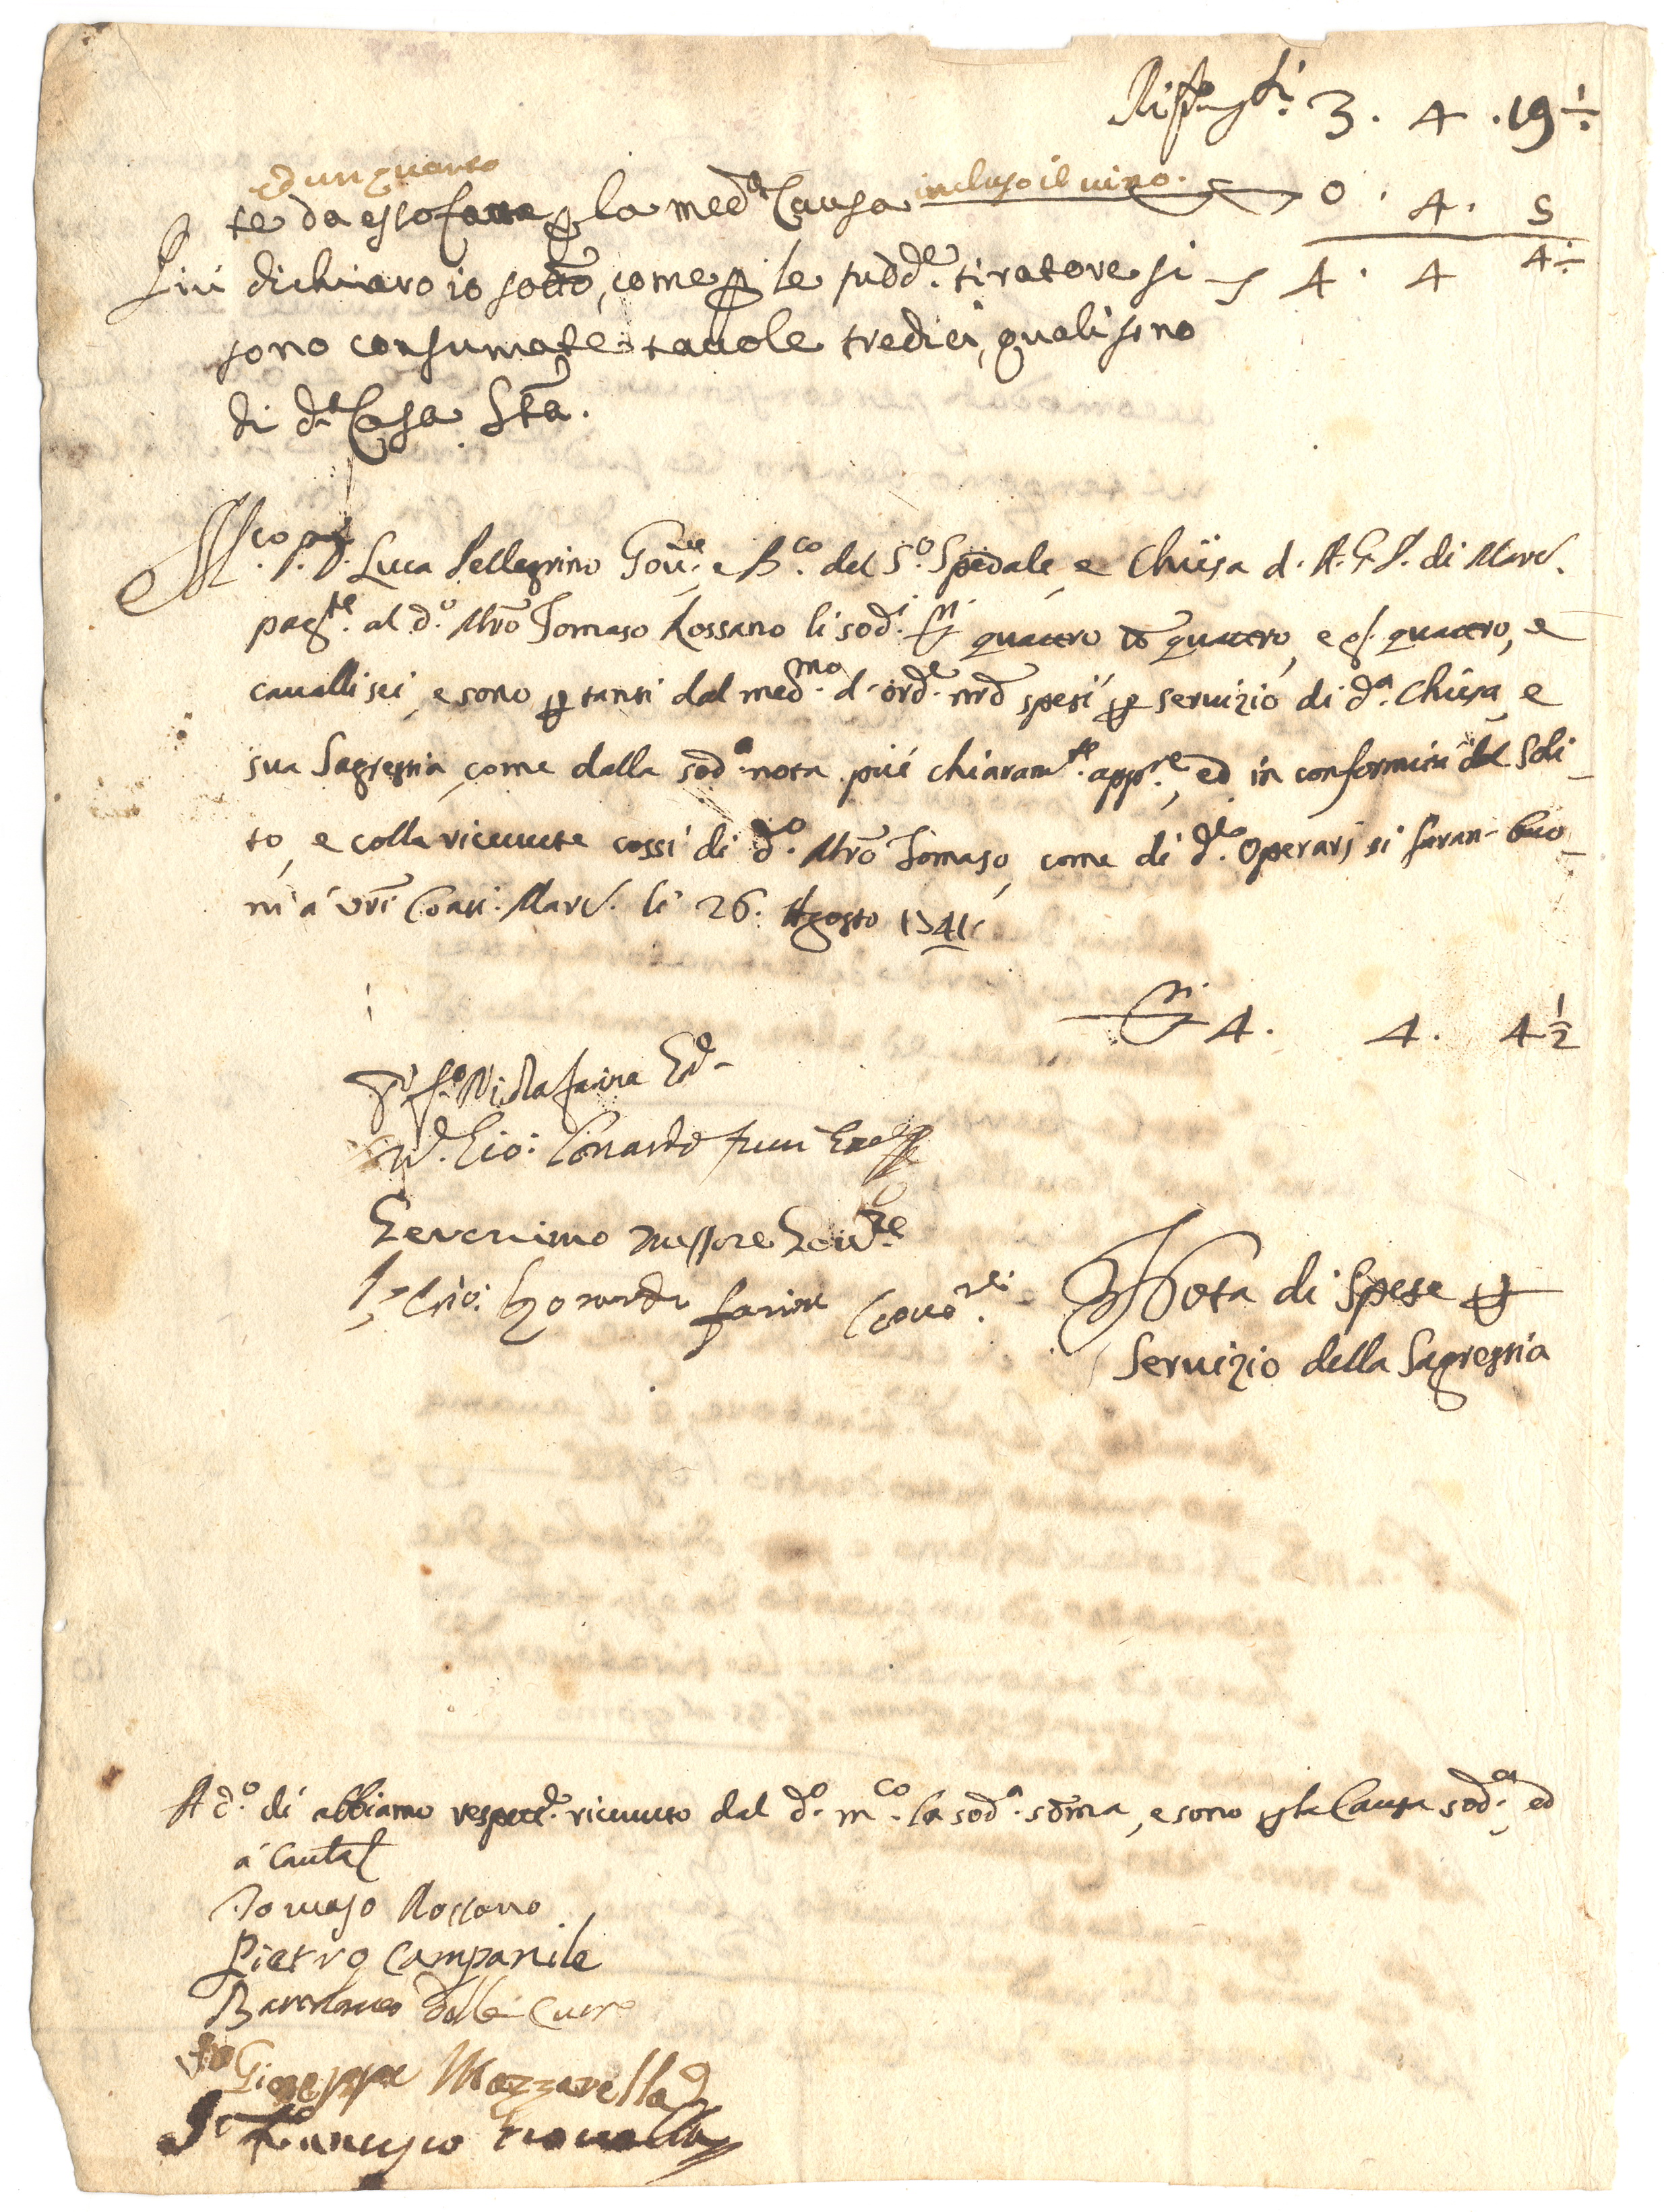 3. 4. 19 ½
ed un quarto
te da esso fatte p la med.ª Causa incluso il uino. 0. 4. 5
Più dichiaro io sotto, come p le sudd.e tiratore si 4. 4 4½
sono consumate tauole tredici, quali sono
di d.ª Casa S.ta.
M.co Luca Pellegrino Gou.re e B.co del S.º Spedale, e Chiesa d. A.G.P. di Marc.
pag.te al d.º Mro Tomaso Rossano li sod.i quattro quattro, e quattro, e
caualli sei, e sono p tanti dal med.mo d'ord.e nro spesi p seruizio di d.ª Chiesa, e
sua Sagrestia, come dalla sod.ª nota più chiaram.te app.re, ed in conformità del soli-
to, e colla riceuute cossì di d.º Mro Tomaso, come di d.i Operarj si faran buo-
ni a uri Conti. Marc. li 26. Agosto 1741.
4. 4. 4½
Farina
Gio: Lonardo
Geronimo
Gio: Lonardo farina
Nota di Spese p
Seruizio della Sagrestia
A d.º dì abbiamo respett.e riceuuto dal d.º m.co la sod.ª soma, e sono p la Causa sod.ª, ed
a Caut.
Tomaso Rossano
Pietro Campanile
Bartolomeo delle Curre
Io Giuseppe Mazzarella
Io Francesco